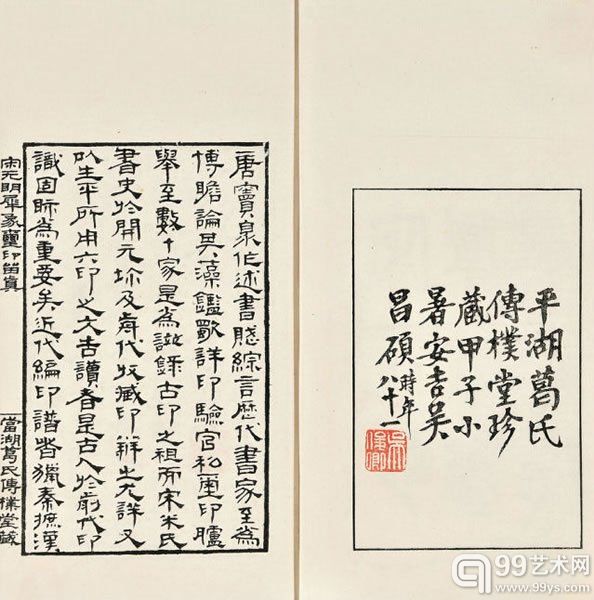 平湖葛氏
傳樸堂珍
藏甲子小
暑安吉吳
昌碩時年八十一
吳俊卿
唐竇臮作述書賦綜言歷代書家至為
博贍論其藻鑑詳印驗官私璽印臚
舉至數十家是為錄古印之祖而宋米氏
書史於開元及歬代收藏印辯之尤詳又
㠯生平所用六印之文告讀者是古人於歬代印
識固眎為重要矣近代編印譜者獵秦摭漢
宋元明犀象璽印留真
當湖葛氏傳樸堂藏
99艺术网
www.99ys.com